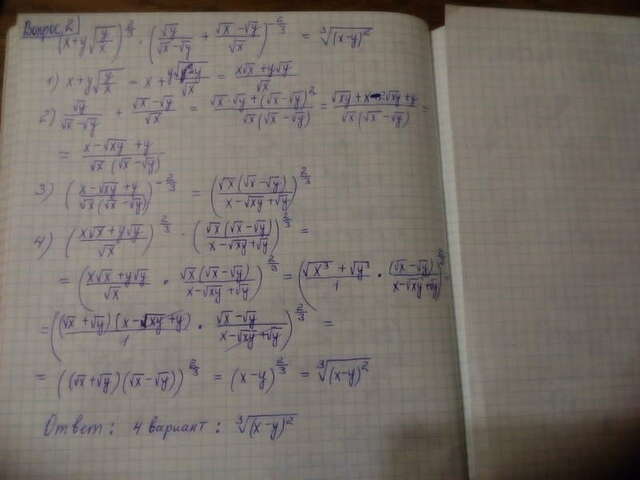 Вопрос 2
(x+y√(y/x))^(2/3) · (√y/(√x-√y) + (√x-√y)/√x)^(-2/3) = ∛((x-y)²)
1) x+y√(y/x) = x+ y√y/√x = (x√x+y√y)/√x
2) √y/(√x-√y) + (√x-√y)/√x = (√x·√y+(√x-√y)²)/(√x(√x-√y)) = (√xy+x-2√xy+y)/(√x(√x-√y)) =
= (x-√xy+y)/(√x(√x-√y))
3) ((x-√xy+y)/(√x(√x-√y)))^(-2/3) = (√x(√x-√y)/(x-√xy+√y))^(2/3)
4) ((x√x+y√y)/√x)^(2/3) · (√x(√x-√y)/(x-√xy+√y))^(2/3) =
= ((x√x+y√y)/√x · √x(√x-√y)/(x-√xy+√y))^(2/3) = ((√x³+√y³)/1 · (√x-√y)/(x-√xy+√y))^(2/3)
= ((√x+√y)(x-√xy+y)/1 · (√x-√y)/(x-√xy+√y))^(2/3) =
= ((√x+√y)(√x-√y))^(2/3) = (x-y)^(2/3) = ∛((x-y)²)
Ответ: 4 вариант: ∛((x-y)²)